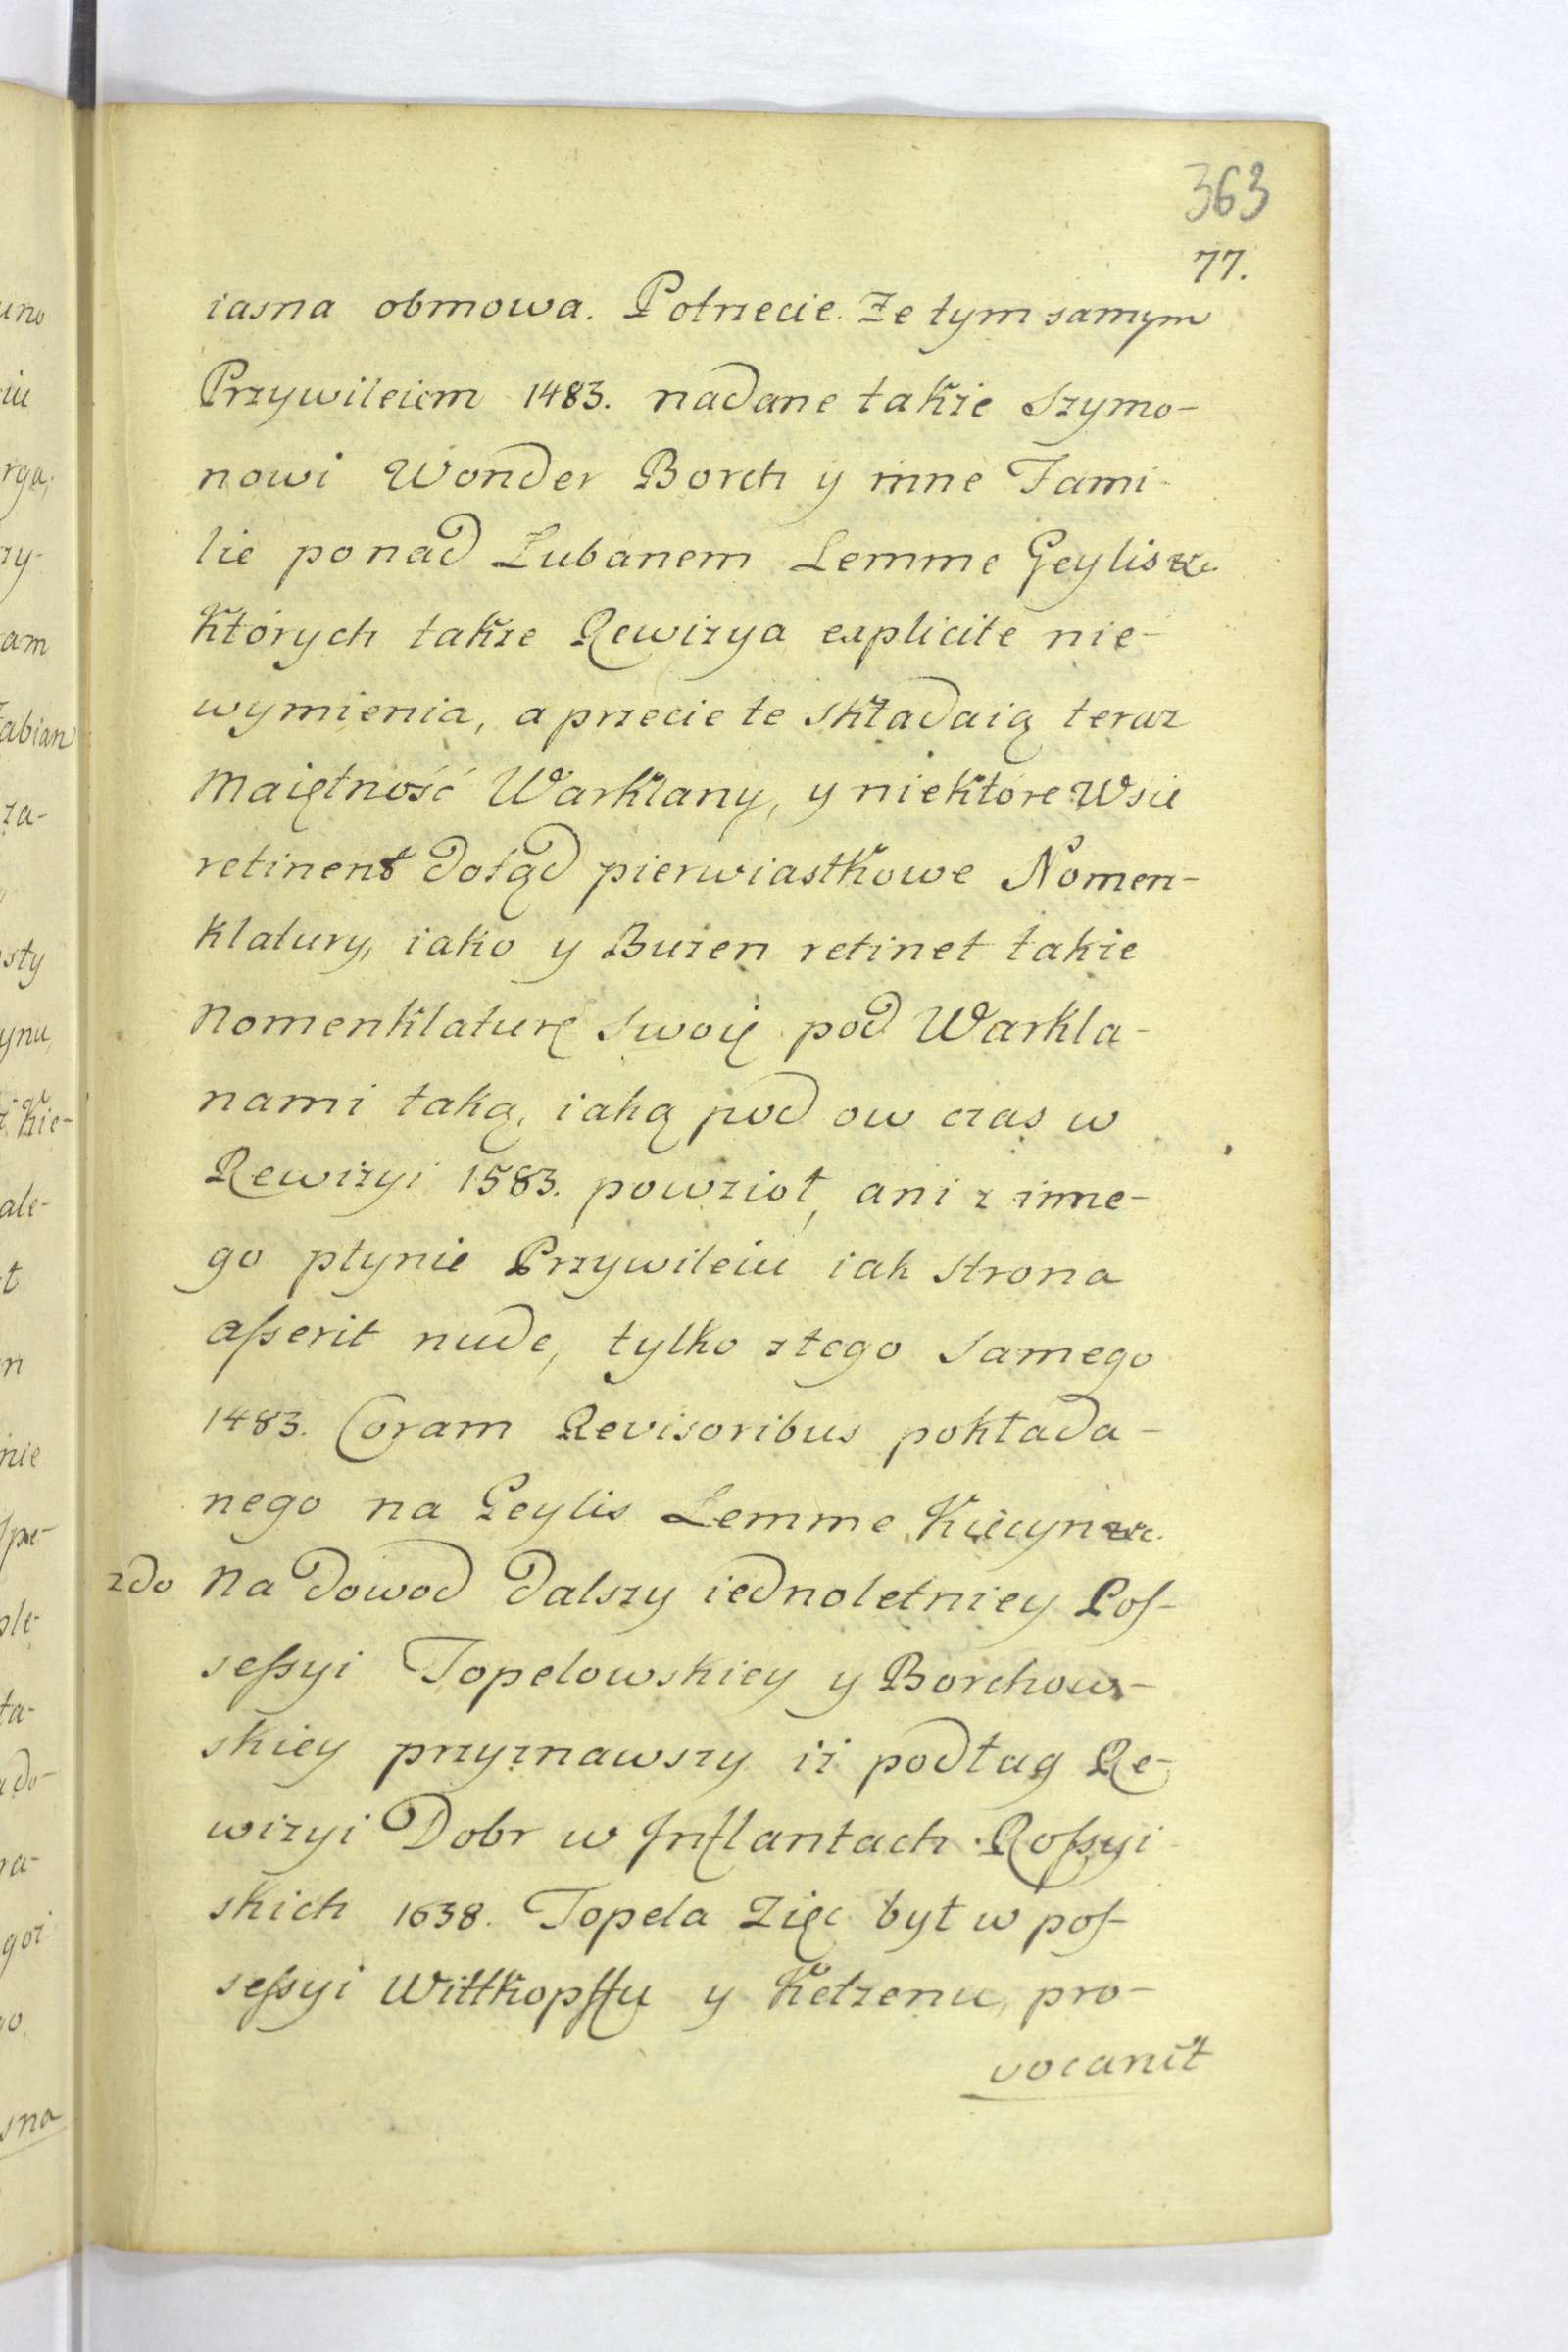 363
77.
iasna obmowa. Potrzecie. Że tym samym
Przywileiem 1483. nadane także Szymo-
nowi Wonder Borch y inne Fami-
lie ponad Lubanem Lemme Geylis etc.
których także Rewizya explicite nie-
wymienia, a przecie te składaią teraz
Maiętność Warklany, y niektóre Wsie
retinent dotąd pierwiastkowe Nomen-
klatury, iako y Buzen retinet takie
Nomenklaturę swoię pod Warkla-
nami taką, iaką pod ow czas w
Rewizyi 1583. powzioł, ani z inne-
go płynie Przywileiu iak Strona
aſserit nude, tylko z tego Samego
1483. Coram Revisoribus pokłada-
nego na Geylis Lemme Kiecyn etc.
2do Na Dowod Dalszy iednoletniey Poſ-
seſsyi Topelowskiey y Borchow-
skiey przyznawszy iż podług Re-
wizyi Dobr w Inflantach Roſsyi-
skich 1638. Topela Zięc był w poſ-
seſsyi Wittkopffu y Ketzenu, pro-
vocanit